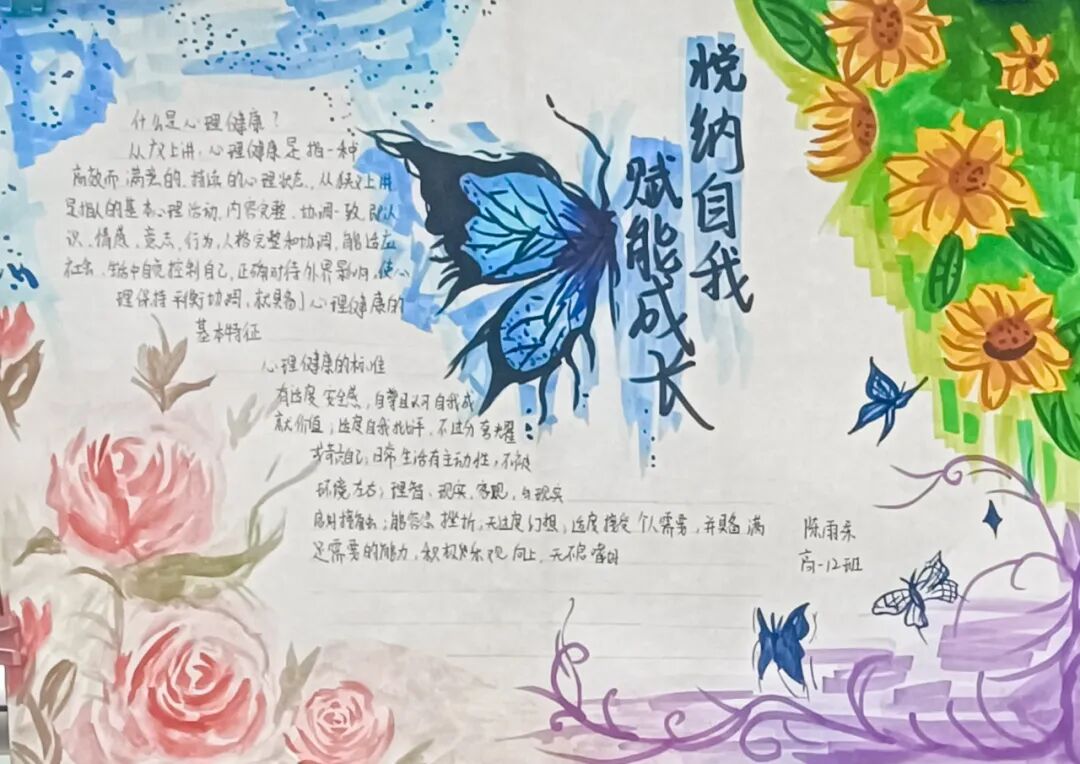 悦纳自我
赋能成长
什么是心理健康?
从广义上讲,心理健康是指一种
高效而满意的、持续的心理状态。从狭义上讲
是指人的基本心理活动,内容完整、协调一致,即认
识、情感、意志、行为、人格完整和协调,能适应
社会,生活中自觉控制自己,正确对待外界影响,使心
理保持平衡协调,就具备了心理健康的
基本特征
心理健康的标准
有适度安全感,自尊且认可自我成
就价值;适度自我批评,不过分夸耀
自己;日常生活有主动性,不被
环境左右;理智、现实、客观,与现实
能容忍挫折,无过度幻想;适度接受个人需要,并具备满
足需要的能力,积极乐观向上,
陈雨
高一12班